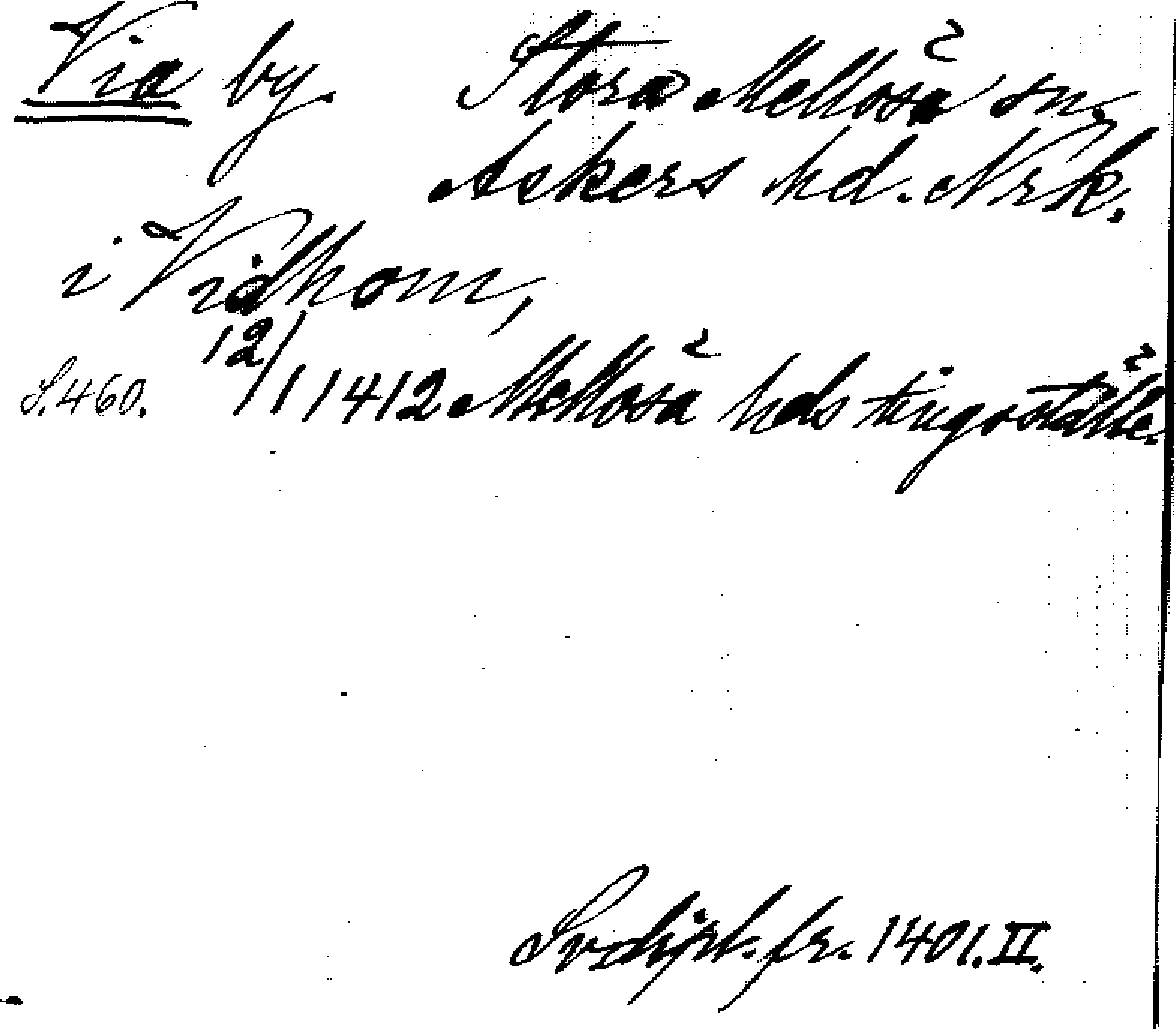 Via by. Stora Mellöså sn,
Askers hd. Nrk.
i Vidhom,
S. 460. 12/1 1412 Mellösa hds tingsställe.
Sv. dipl. fr. 1401. II.